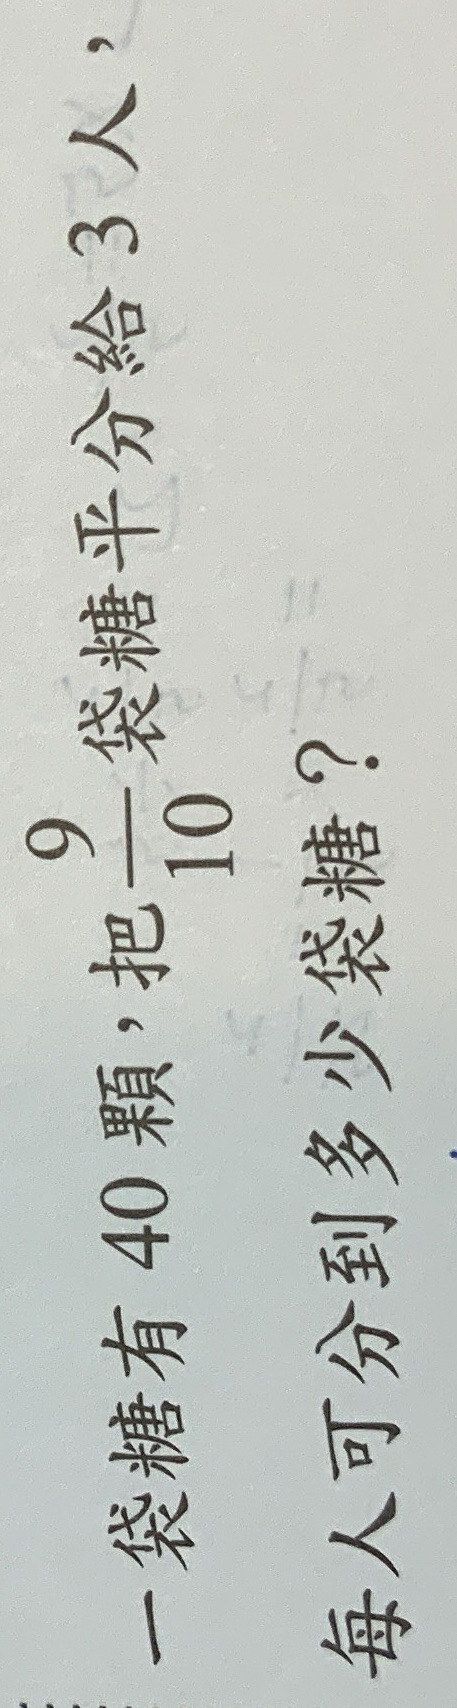 一袋糖有 40 顆，把 9/10 袋糖平分給 3 人，
每人可分到多少袋糖？